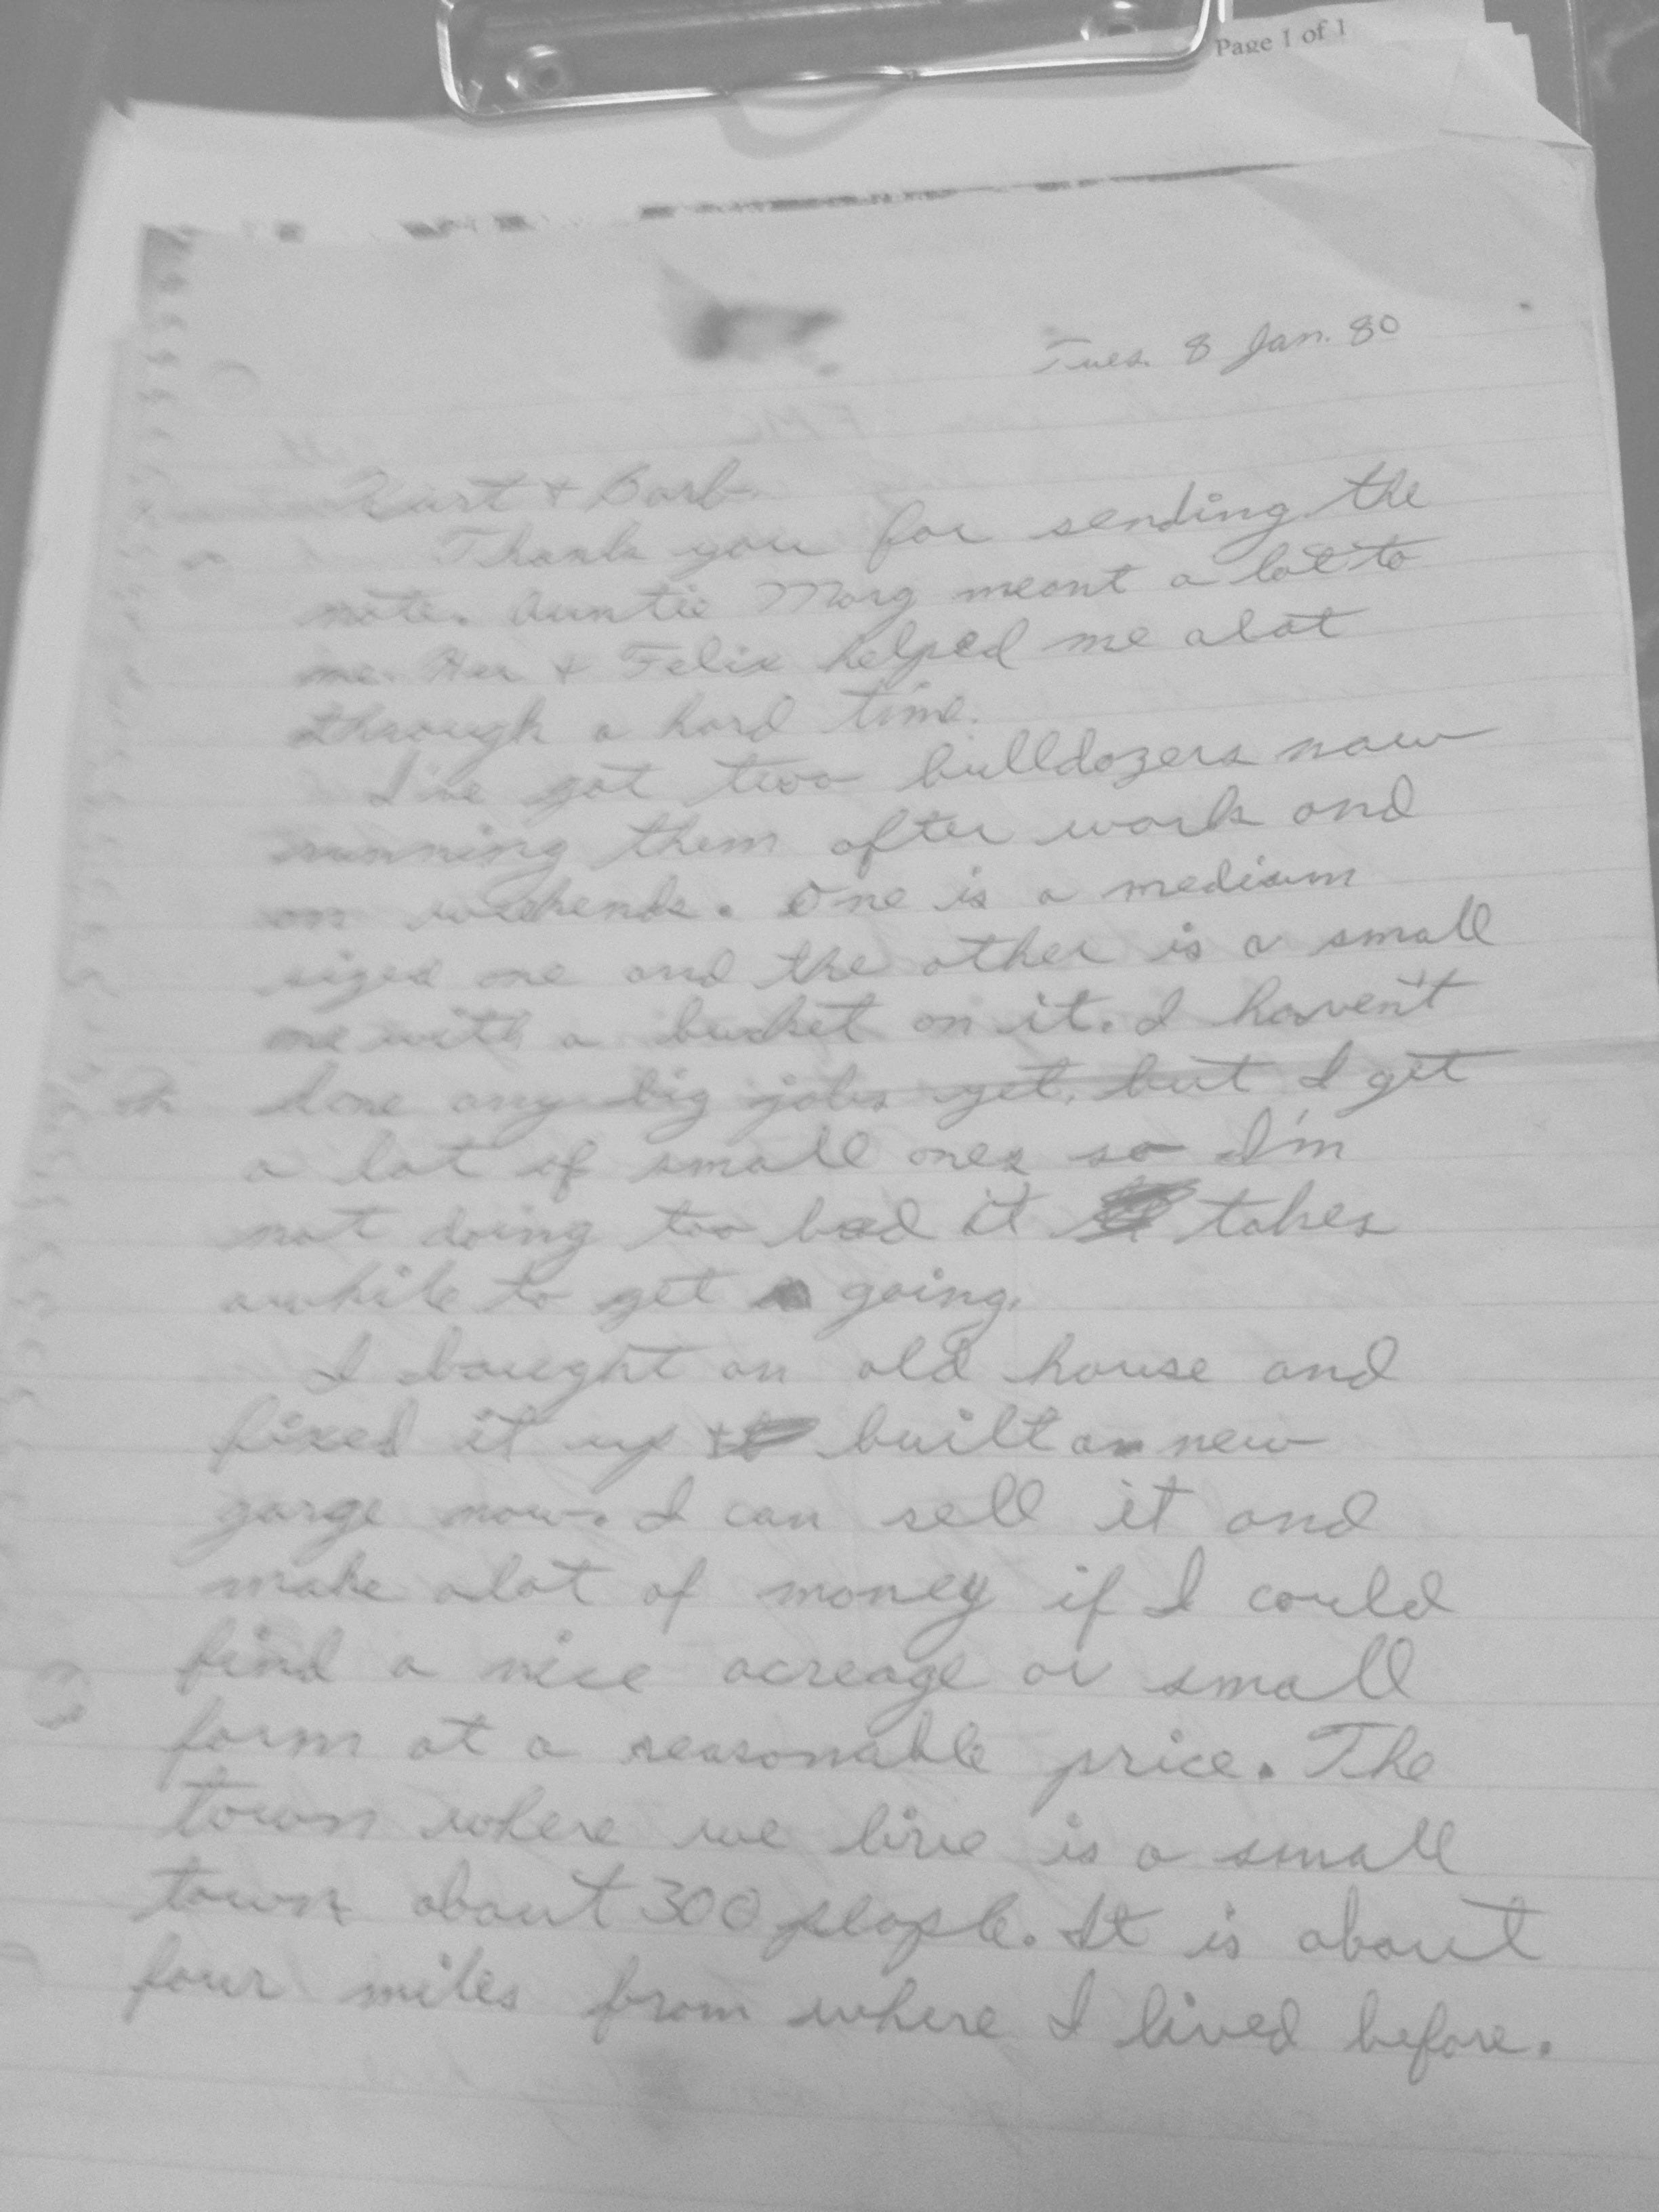 Page 1 of 1
Tues. 8 Jan. 80
Kurt + Barb.
Thank you for sending the
note. Auntie Marg meant a lot to
me. Her + Felix helped me alot
through a hard time.
I've got two bulldozers now
running them after work and
on weekends. One is a medium
sized one and the other is a small
one with a bucket on it. I haven't
done any big jobs yet, but I get
a lot of small ones so I'm
not doing too bad it takes
awhile to get going.
I bought an old house and
fixed it up built a new
garge now. I can sell it and
make alot of money if I could
find a nice acreage or small
farm at a reasonable price. The
town where we live is a small
town about 300 people. It is about
four miles from where I lived before.